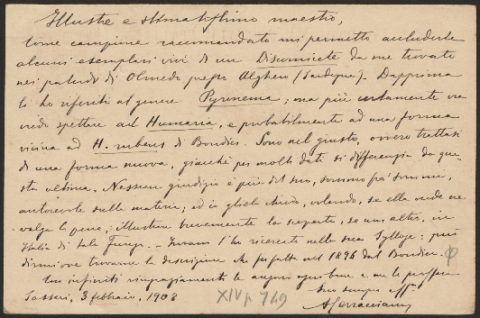 Illustre e stimatissimo maestro,
Come campione raccomandato mi permetto accluderle
alcuni esemplari vivi di un Discomicete da me trovato
nei paludi di Olmedo presso Alghero (Sardegna). Dapprima
li ho riferiti al genere Pyronema; ma più certamente
credo spettare ad Humaria, e probabilmente ad una forma
vicina ad H. rubens di Boudier. Sono nel giusto, ovvero trattasi
di una forma nuova, giacchè per molti dati si differenzia da que-
sta ultima. Nessun giudizio è più del suo, sommo fra sommi,
autorevole sulla materia; ed io glielo chiedo, volendo, se ella crede ne
valga la pena, illustrare brevemente la scoperta, se mai altri, in
Italia di tale fungo. - Invano l'ho ricercato nella sua Sylloge: può
dirmi ove trovare la descrizione che fu fatta nel 1896 dal Boudier.
Con infiniti ringraziamenti le auguro ogni bene e me le professo
Sassari, 3 febbraio, 1908 suo sempre aff.
XIV p 749